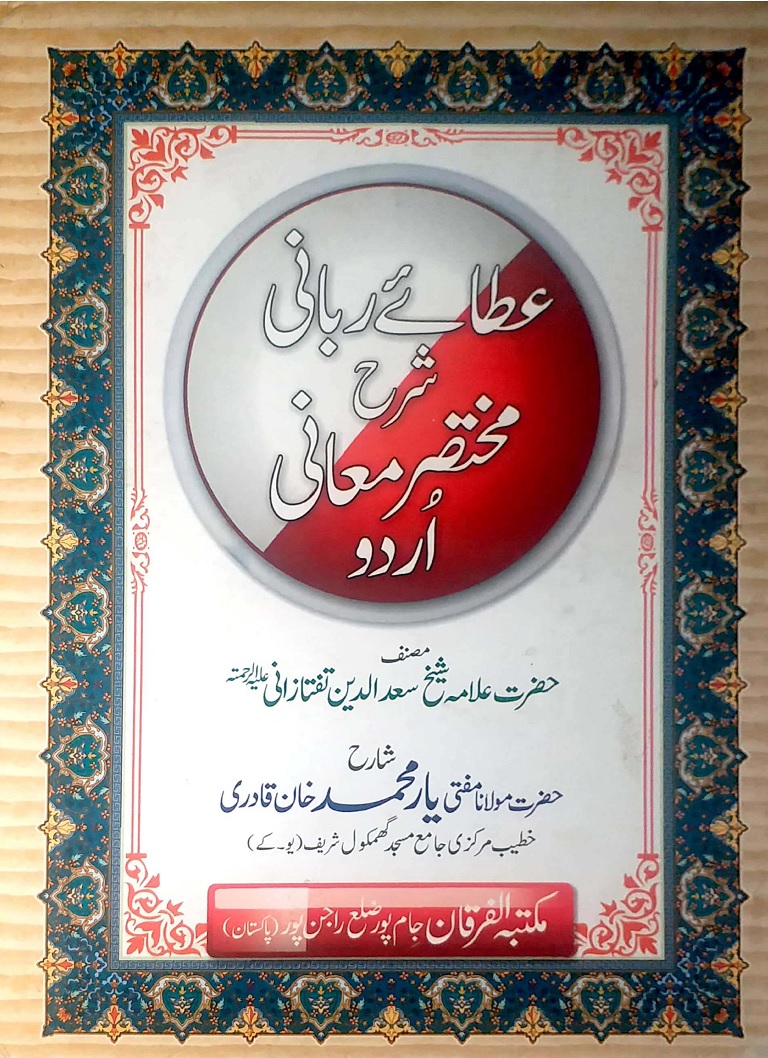 عطائے ربانی
شرح
مختصر معانی
اُردو
مصنف
حضرت علامہ شیخ سعد الدین تفتازانی علیہ الرحمتہ
شارح
حضرت مولانا مفتی یار محمد خان قادری
خطیب مرکزی جامع مسجد گھمکول شریف (یو۔کے)
مکتبہ الفرقان جام پور ضلع راجن پور (پاکستان)